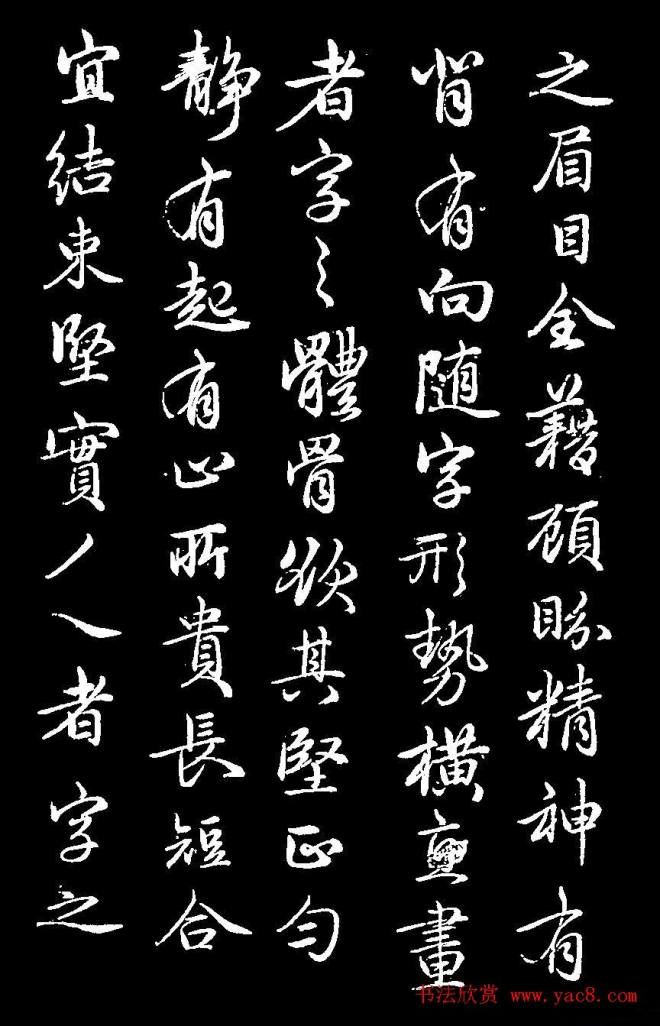 之眉目全藉顧盼精神有
背有向随字形勢橫直畫
者字之體骨欲其堅正勻
靜有起有止所貴長短合
宜結束堅實丿乀者字之
书法欣赏 www.yac8.com